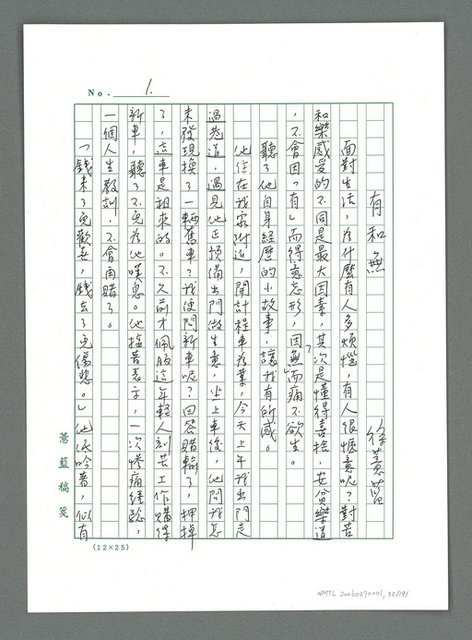 No. 1.
有和無
徐薏藍
面對生活，為什麼有人多煩惱，有人很愜意呢？對苦
和樂感受的不同是最大因素，其次是懂得喜捨，安貧樂道
，不會因「有」而得意忘形，因「無」而痛不欲生。
聽了他自身經歷的小故事，讓我有所感。
他住在我家附近，開計程車為業，今天上午我出門走
過巷道，遇見他正預備出門做生意，坐上車後，他問我怎
未發現換了一輛舊車？我便問新車呢？回答賭輸了，押掉
了，這車是租來的。不久前才佩服這年輕人刻苦工作購得
新車，聽了不免為他嘆息。他搖首表示，一次慘痛經驗，
一個人生教訓，不會再賭了。
「錢來了免歡喜，錢去了免傷悲。」他低吟著，似有
薏藍稿箋
(12×25)
NMTL 20060370041, 32/191